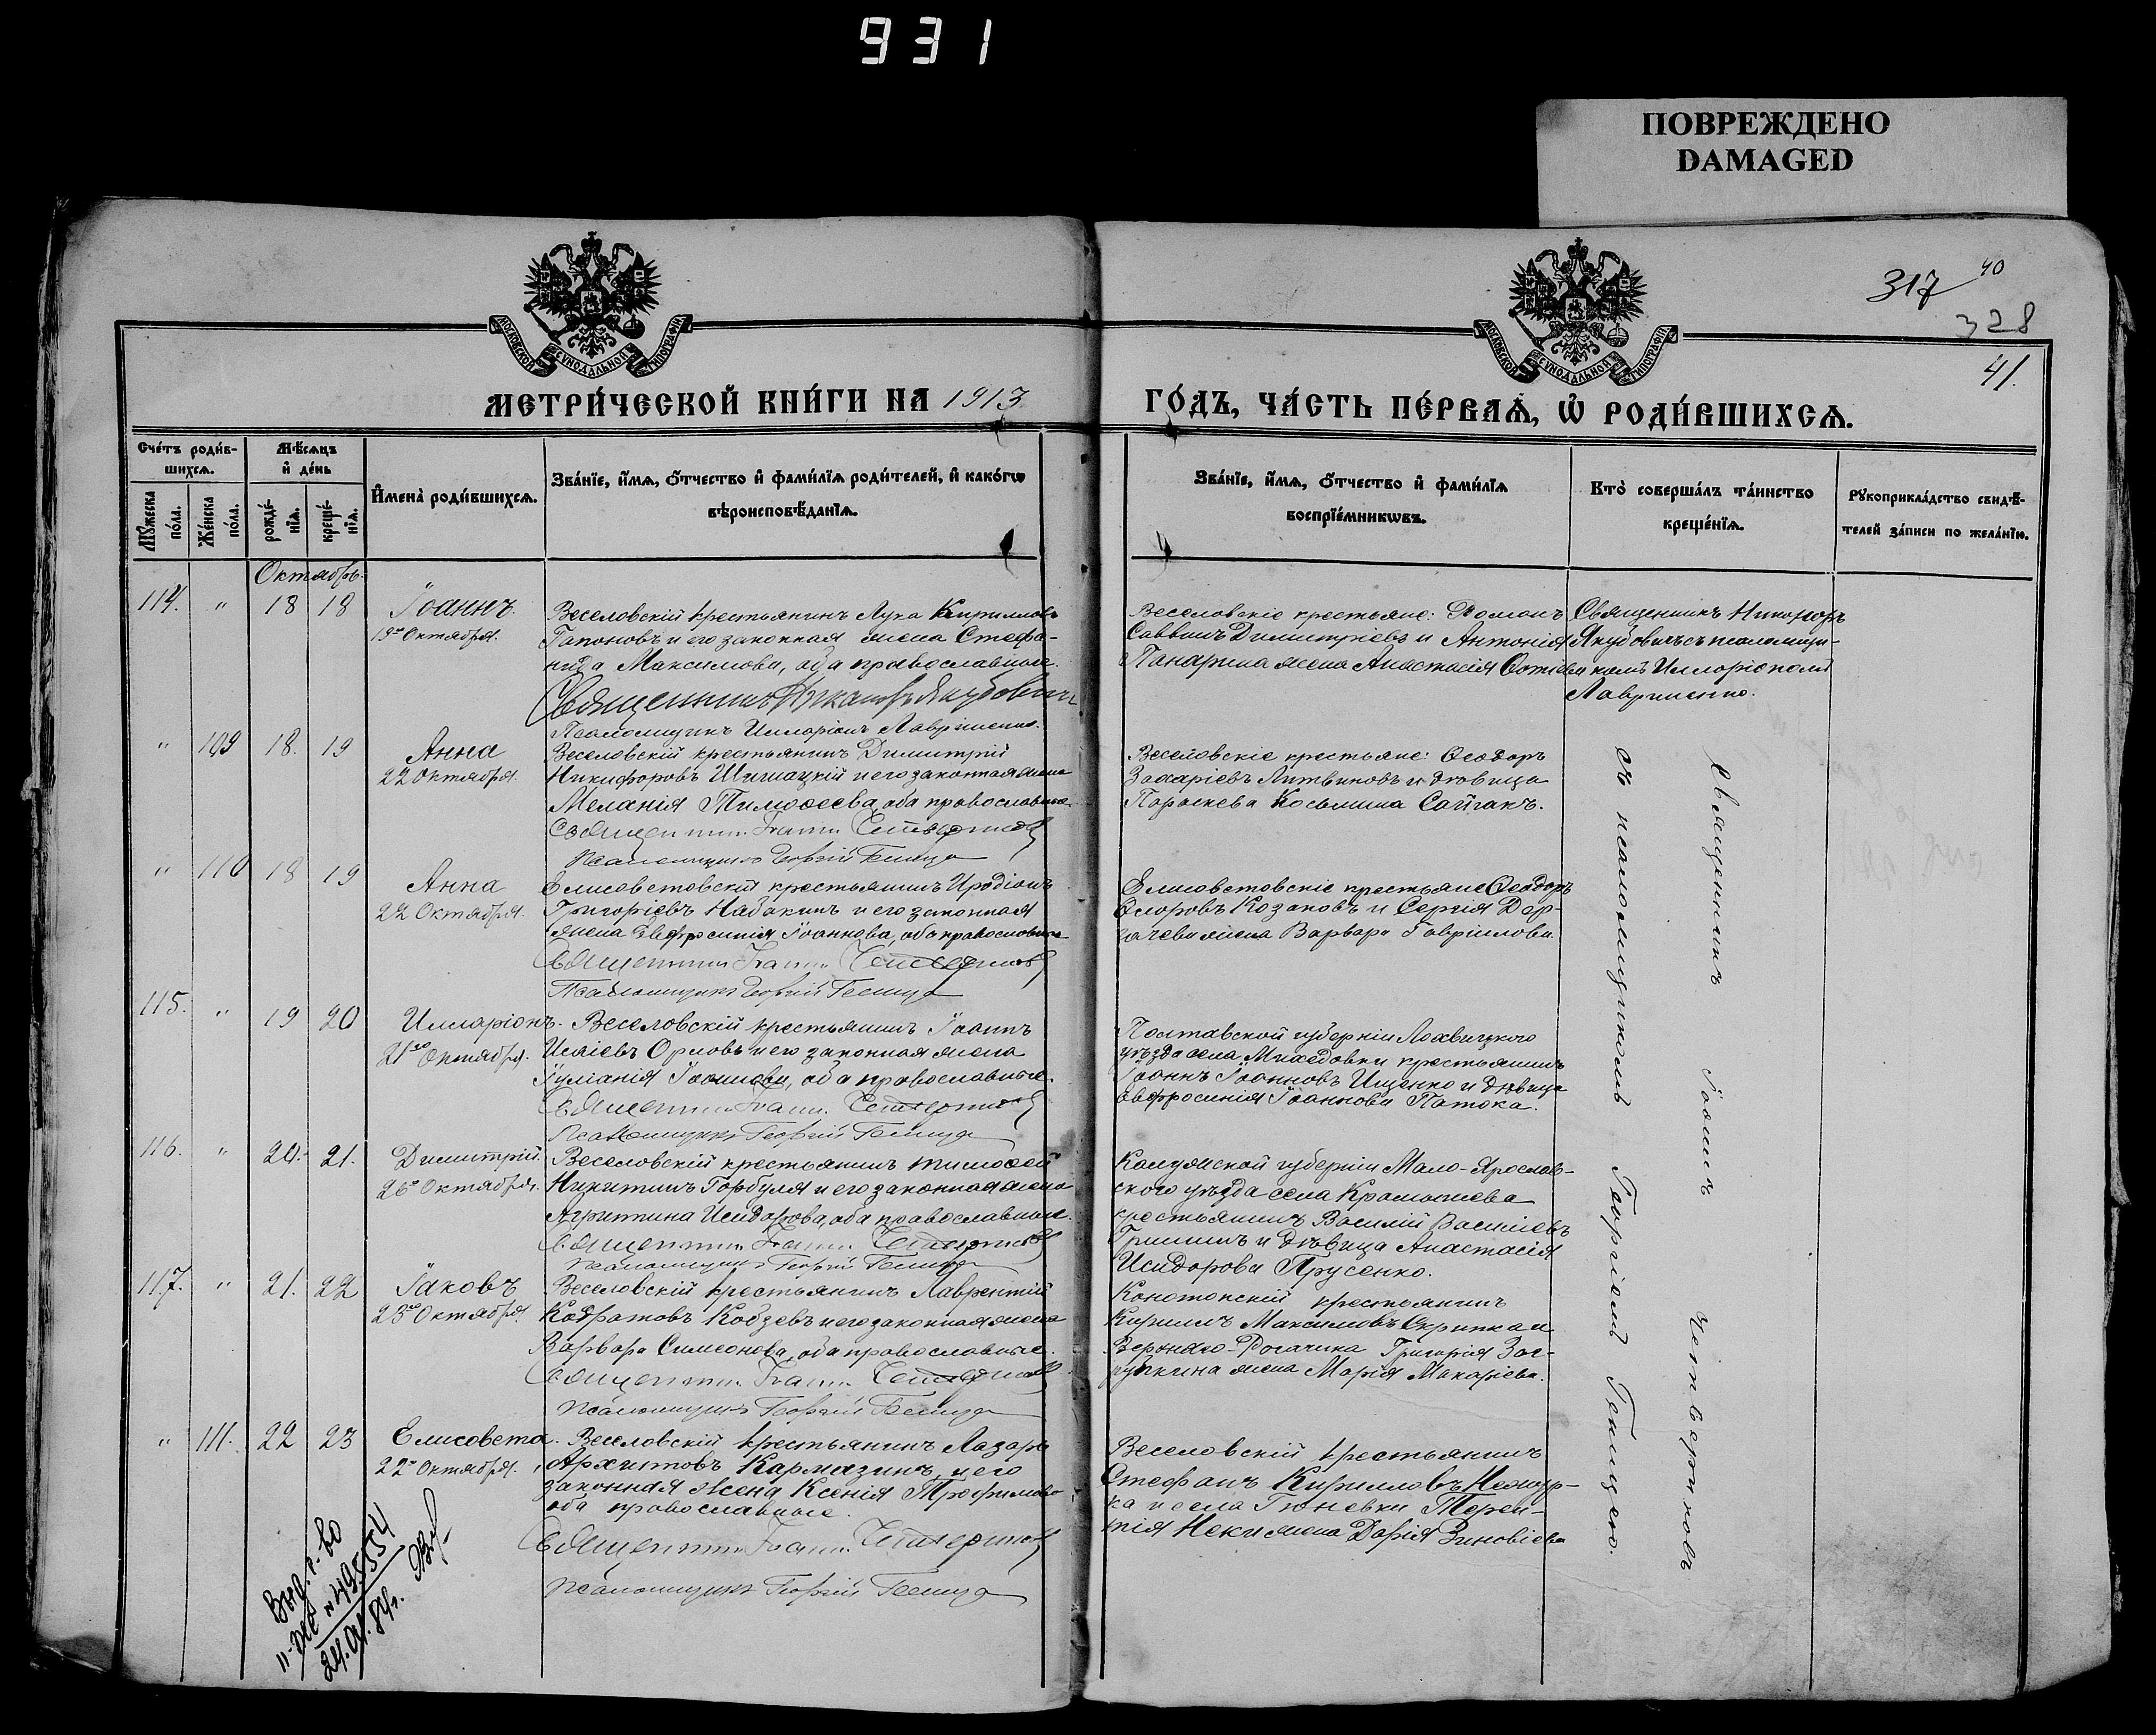 931
ПОВРЕЖДЕНО
DAMAGED
317 40
328
41.
МОСКОВСКОЙ СѴНОДАЛЬНОЙ ТИПОГРАФІИ
МОСКОВСКОЙ СѴНОДАЛЬНОЙ ТИПОГРАФІИ
МЕТРИ́ЧЕСКОЙ КНИ́ГИ НА 1913
ГО́ДЪ, ЧА́СТЬ ПЕ́РВАѦ, Ѡ҆ РОДИ́ВШИХСѦ.
Сче́тъ роди́в-
шихсѧ.
Мѣ́сѧцъ
и҆ де́нь
Мꙋ́жеска по́ла.
Же́нска по́ла.
рожде́-
нїѧ.
креще́-
нїѧ.
И҆мена̀ роди́вшихсѧ.
Зва́нїе, и҆́мѧ, ѻ҆́тчество и҆ фами́лїѧ роди́телей, и҆ како́гѡ
вѣроисповѣ́данїѧ.
Зва́нїе, и҆́мѧ, ѻ҆́тчество и҆ фами́лїѧ
воспрїе́мникѡвъ.
Кто̀ соверша́лъ та́инство
креще́нїѧ.
Рꙋкоприкла́дство свидѣ́-
телей за́писи по жела́нїю.
Октябрь.
114. " 18 18 Іоаннъ.
19го Октября.
Веселовскій крестьянинъ Лука Кирилловъ
Гапоновъ и его законная жена Стефа-
нида Максимова, оба православные.
Священникъ Никаноръ Якубовичъ
Псаломщикъ Илларіонъ Лавриненко.
Веселовскіе крестьяне: Романъ
Саввинъ Димитріевъ и Антонія
Панарина жена Анастасія Фотіева
Священникъ Никаноръ
Якубовичъ съ псаломщи-
комъ Илларіономъ
Лавриненко.
" 109 18. 19 Анна
22 Октября.
Веселовскій крестьянинъ Димитрій
Никифоровъ Шигмацкій и его законная жена
Меланія Тимоѳеева, оба православные.
Священникъ Іоаннъ Четвериковъ
Псаломщикъ Георгій Гекища
Веселовскіе крестьяне: Ѳеодоръ
Захаріевъ Литвиновъ и дѣвица
Параскева Косьмина Сайгакъ.
" 110 18 19 Анна
22 Октября.
Елисаветовскій крестьянинъ Иродіонъ
Григоріевъ Набакинъ и его законная
жена Евфросинія Іоаннова, оба православные
Священникъ Іоаннъ Четвериковъ
Псаломщикъ Георгій Гекища
Елисаветовскіе крестьяне Ѳеодоръ
Флоровъ Козаковъ и Сергія Дер-
гачева жена Варвара Гавріилова.
115. " 19 20 Илларіонъ.
21го Октября.
Веселовскій крестьянинъ Іоаннъ
Исаіевъ Орловъ и его законная жена
Іуліанія Іоаннова, оба православные.
Священникъ Іоаннъ Четвериковъ
Псаломщикъ Георгій Гекища
Полтавской губерніи Лохвицкого
уѣзда села Михедовки крестьянинъ
Іоаннъ Іоанновъ Ищенко и дѣвица
Евфросинія Іоаннова Патока.
116. " 20. 21. Димитрій.
26го Октября.
Веселовскій крестьянинъ Тимоѳей
Никитинъ Горбуля и его законная жена
Агриппина Исидорова, оба православные.
Священникъ Іоаннъ Четвериковъ
Псаломщикъ Георгій Гекища
Калужской губерніи Мало-Ярослав-
ского уѣзда села
крестьянинъ Василій Василіевъ
Гришинъ и дѣвица Анастасія
Исидорова Прусенко.
117. " 21. 22 Іаковъ
23го Октября
Веселовскій крестьянинъ Лаврентій
Кодратовъ Кобзевъ и его законная жена
Варвара Симеонова, оба православные.
Священникъ Іоаннъ Четвериковъ
Псаломщикъ Георгій Гекища
Конотопскій крестьянинъ
Кириллъ Максимовъ Скрипка и
Верхняго-Рогачика Григорія
жена Марія Макаріева.
" 111. 22 23 Елисавета.
22го Октября.
Веселовскій крестьянинъ Лазарь
Архиповъ Кармазинъ и его
законная жена Ксенія Трофимова
оба православные.
Священникъ Іоаннъ Четвериковъ
Псаломщикъ Георгій Гекища
Веселовскій крестьянинъ
Стефанъ Кирилловъ Нежур-
ка и села Гюневки Терен-
тія Неки жена Дарія Зиновіева
Священникъ Іоаннъ Четвериковъ
съ псаломщикомъ Георгіемъ Гекищею.
Выд. п. во